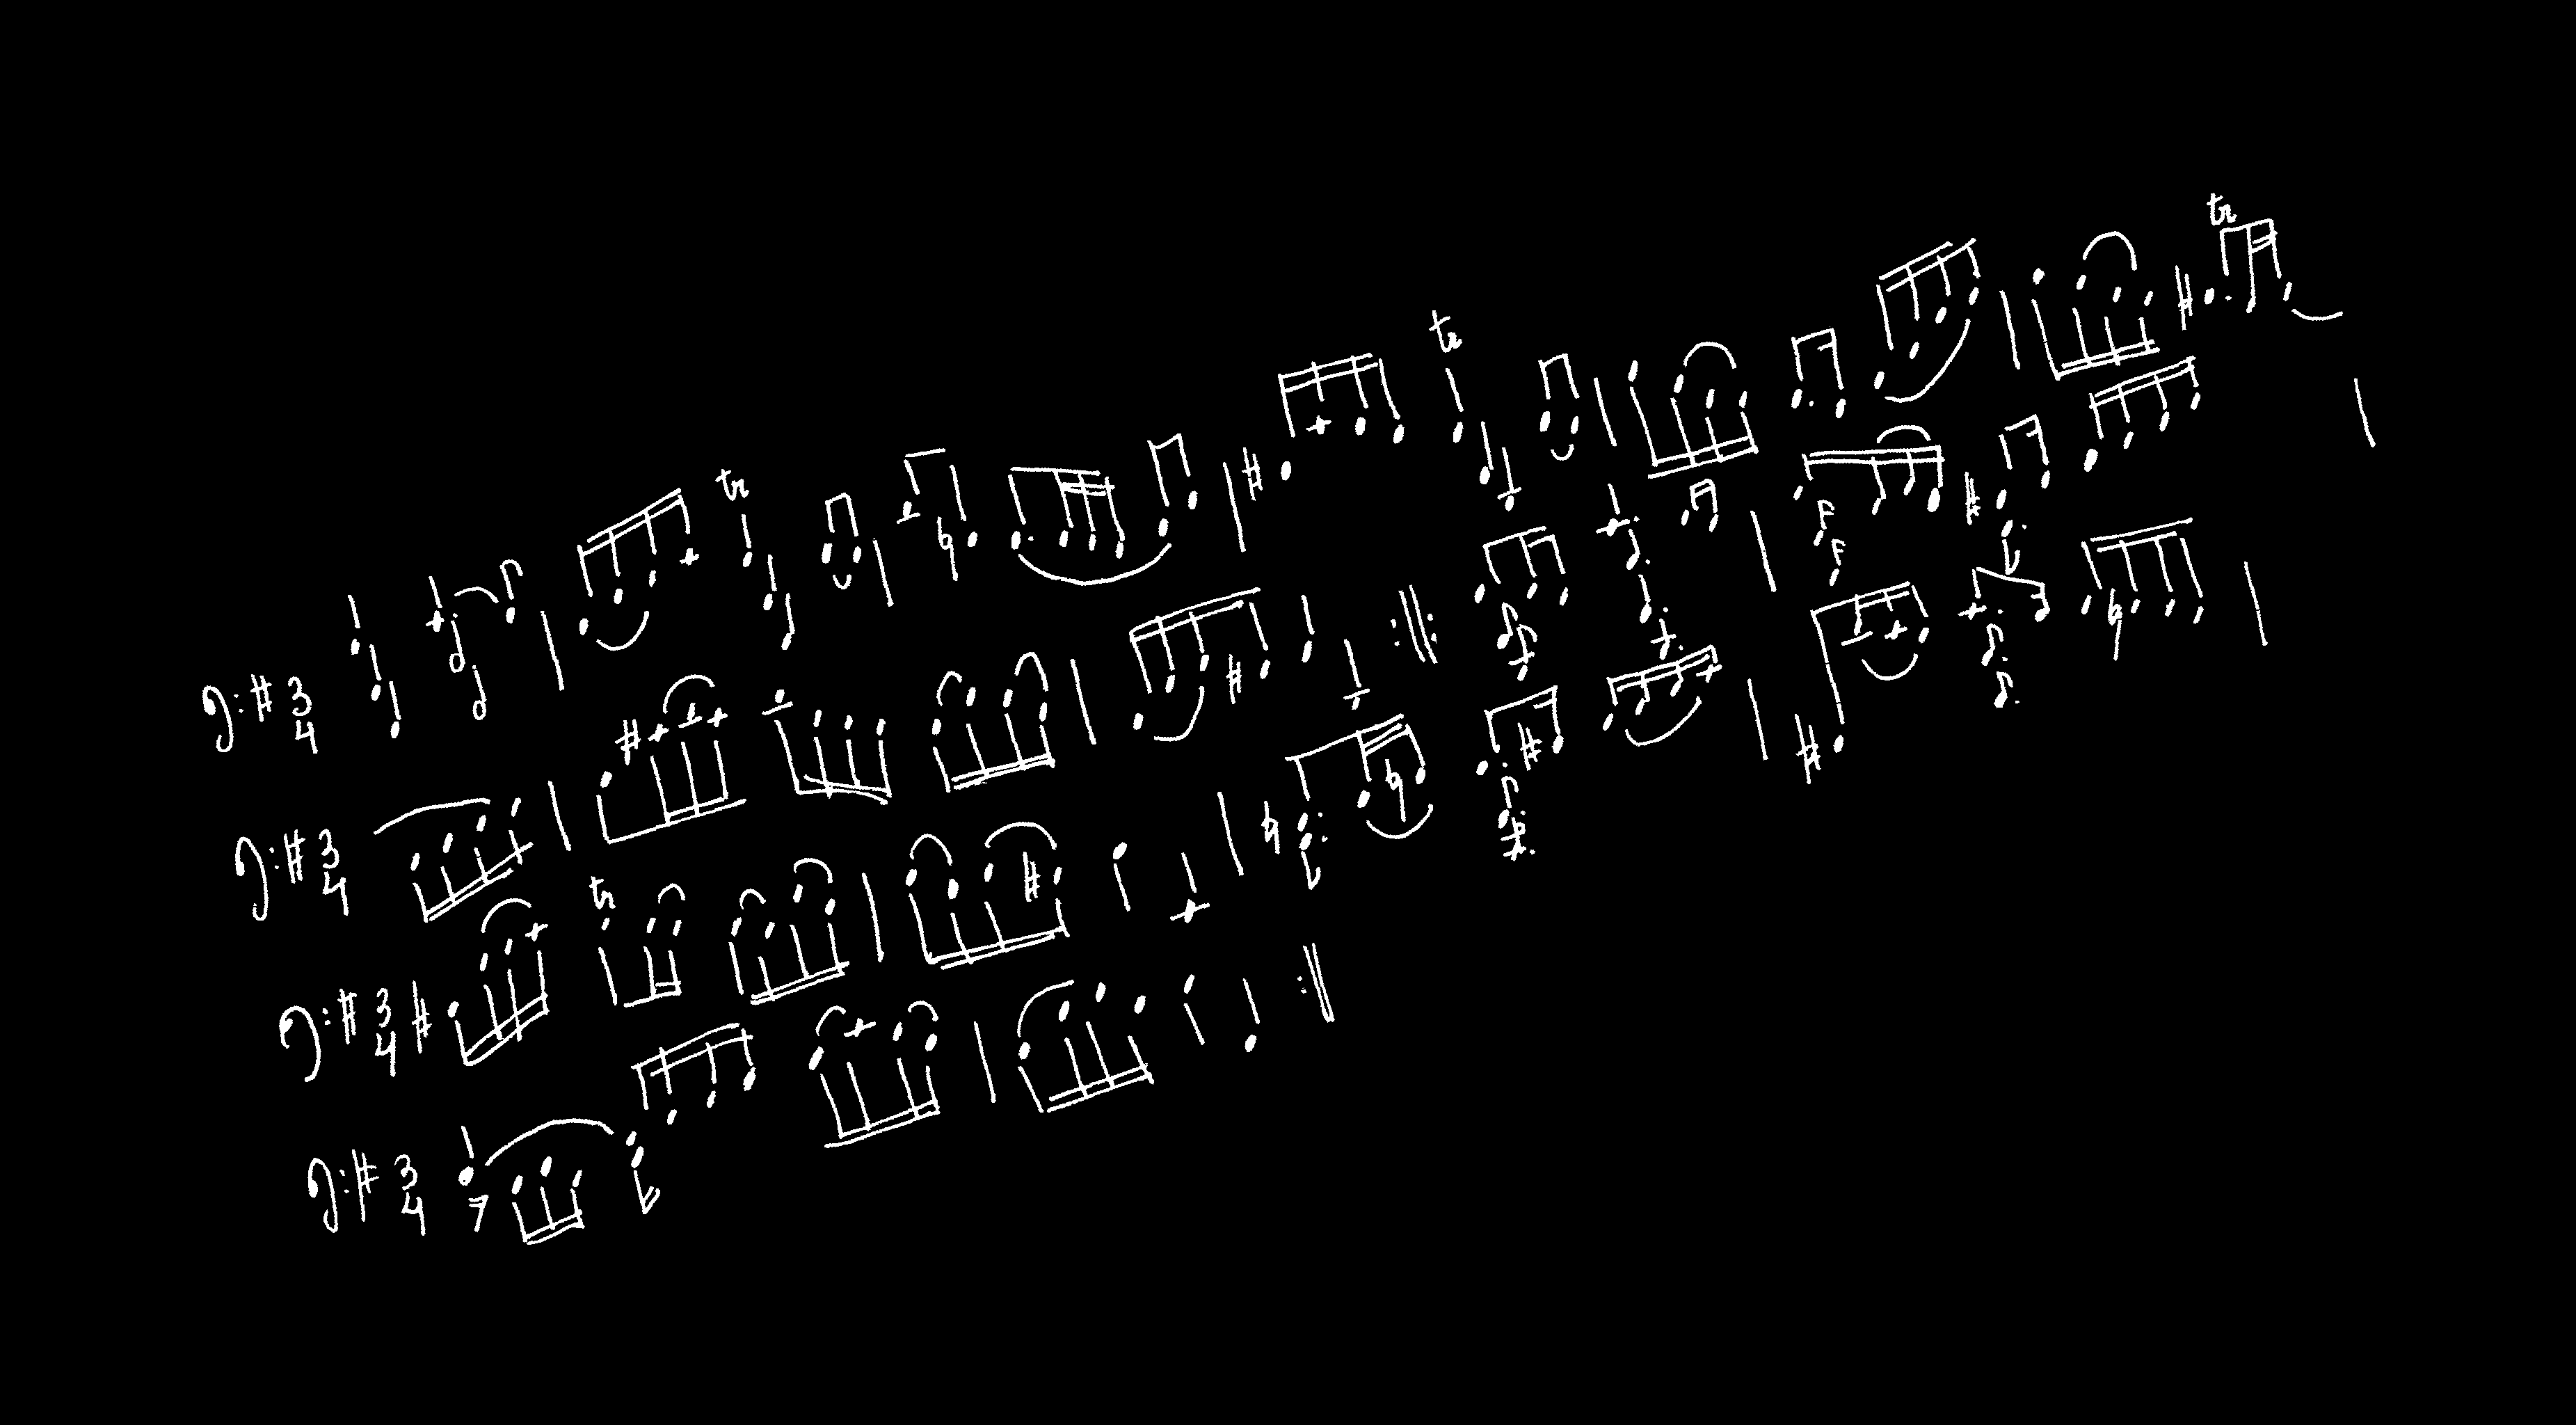 3 4 tr tr tr
3 4
3 4 tr
3 4